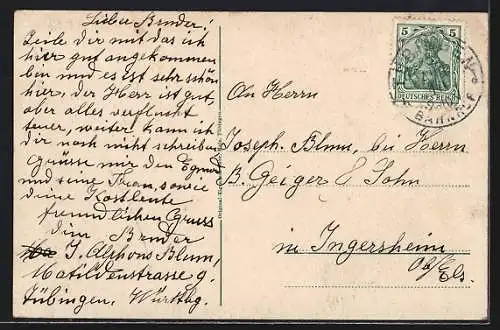 Lieber Bruder!
Teile dir mit das ich
hier gut angekommen
bin und es ist sehr schön
hier, der Herr ist gut,
aber alles verflucht
teuer, weiter kann ich
dir noch nicht schreiben
Grüsse mir den
und seine Frau, sowie
deine Kostleute
freundlichen Gruss
dein Bruder
J. Alphons Blum,
Matildenstrasse 9.
Tübingen, Württbg.
5 5
DEUTSCHES REICH
BAHNHOF
An Herrn
Joseph Blum, bei Herrn
B. Geiger & Sohn
in Ingersheim
Ob/Els.